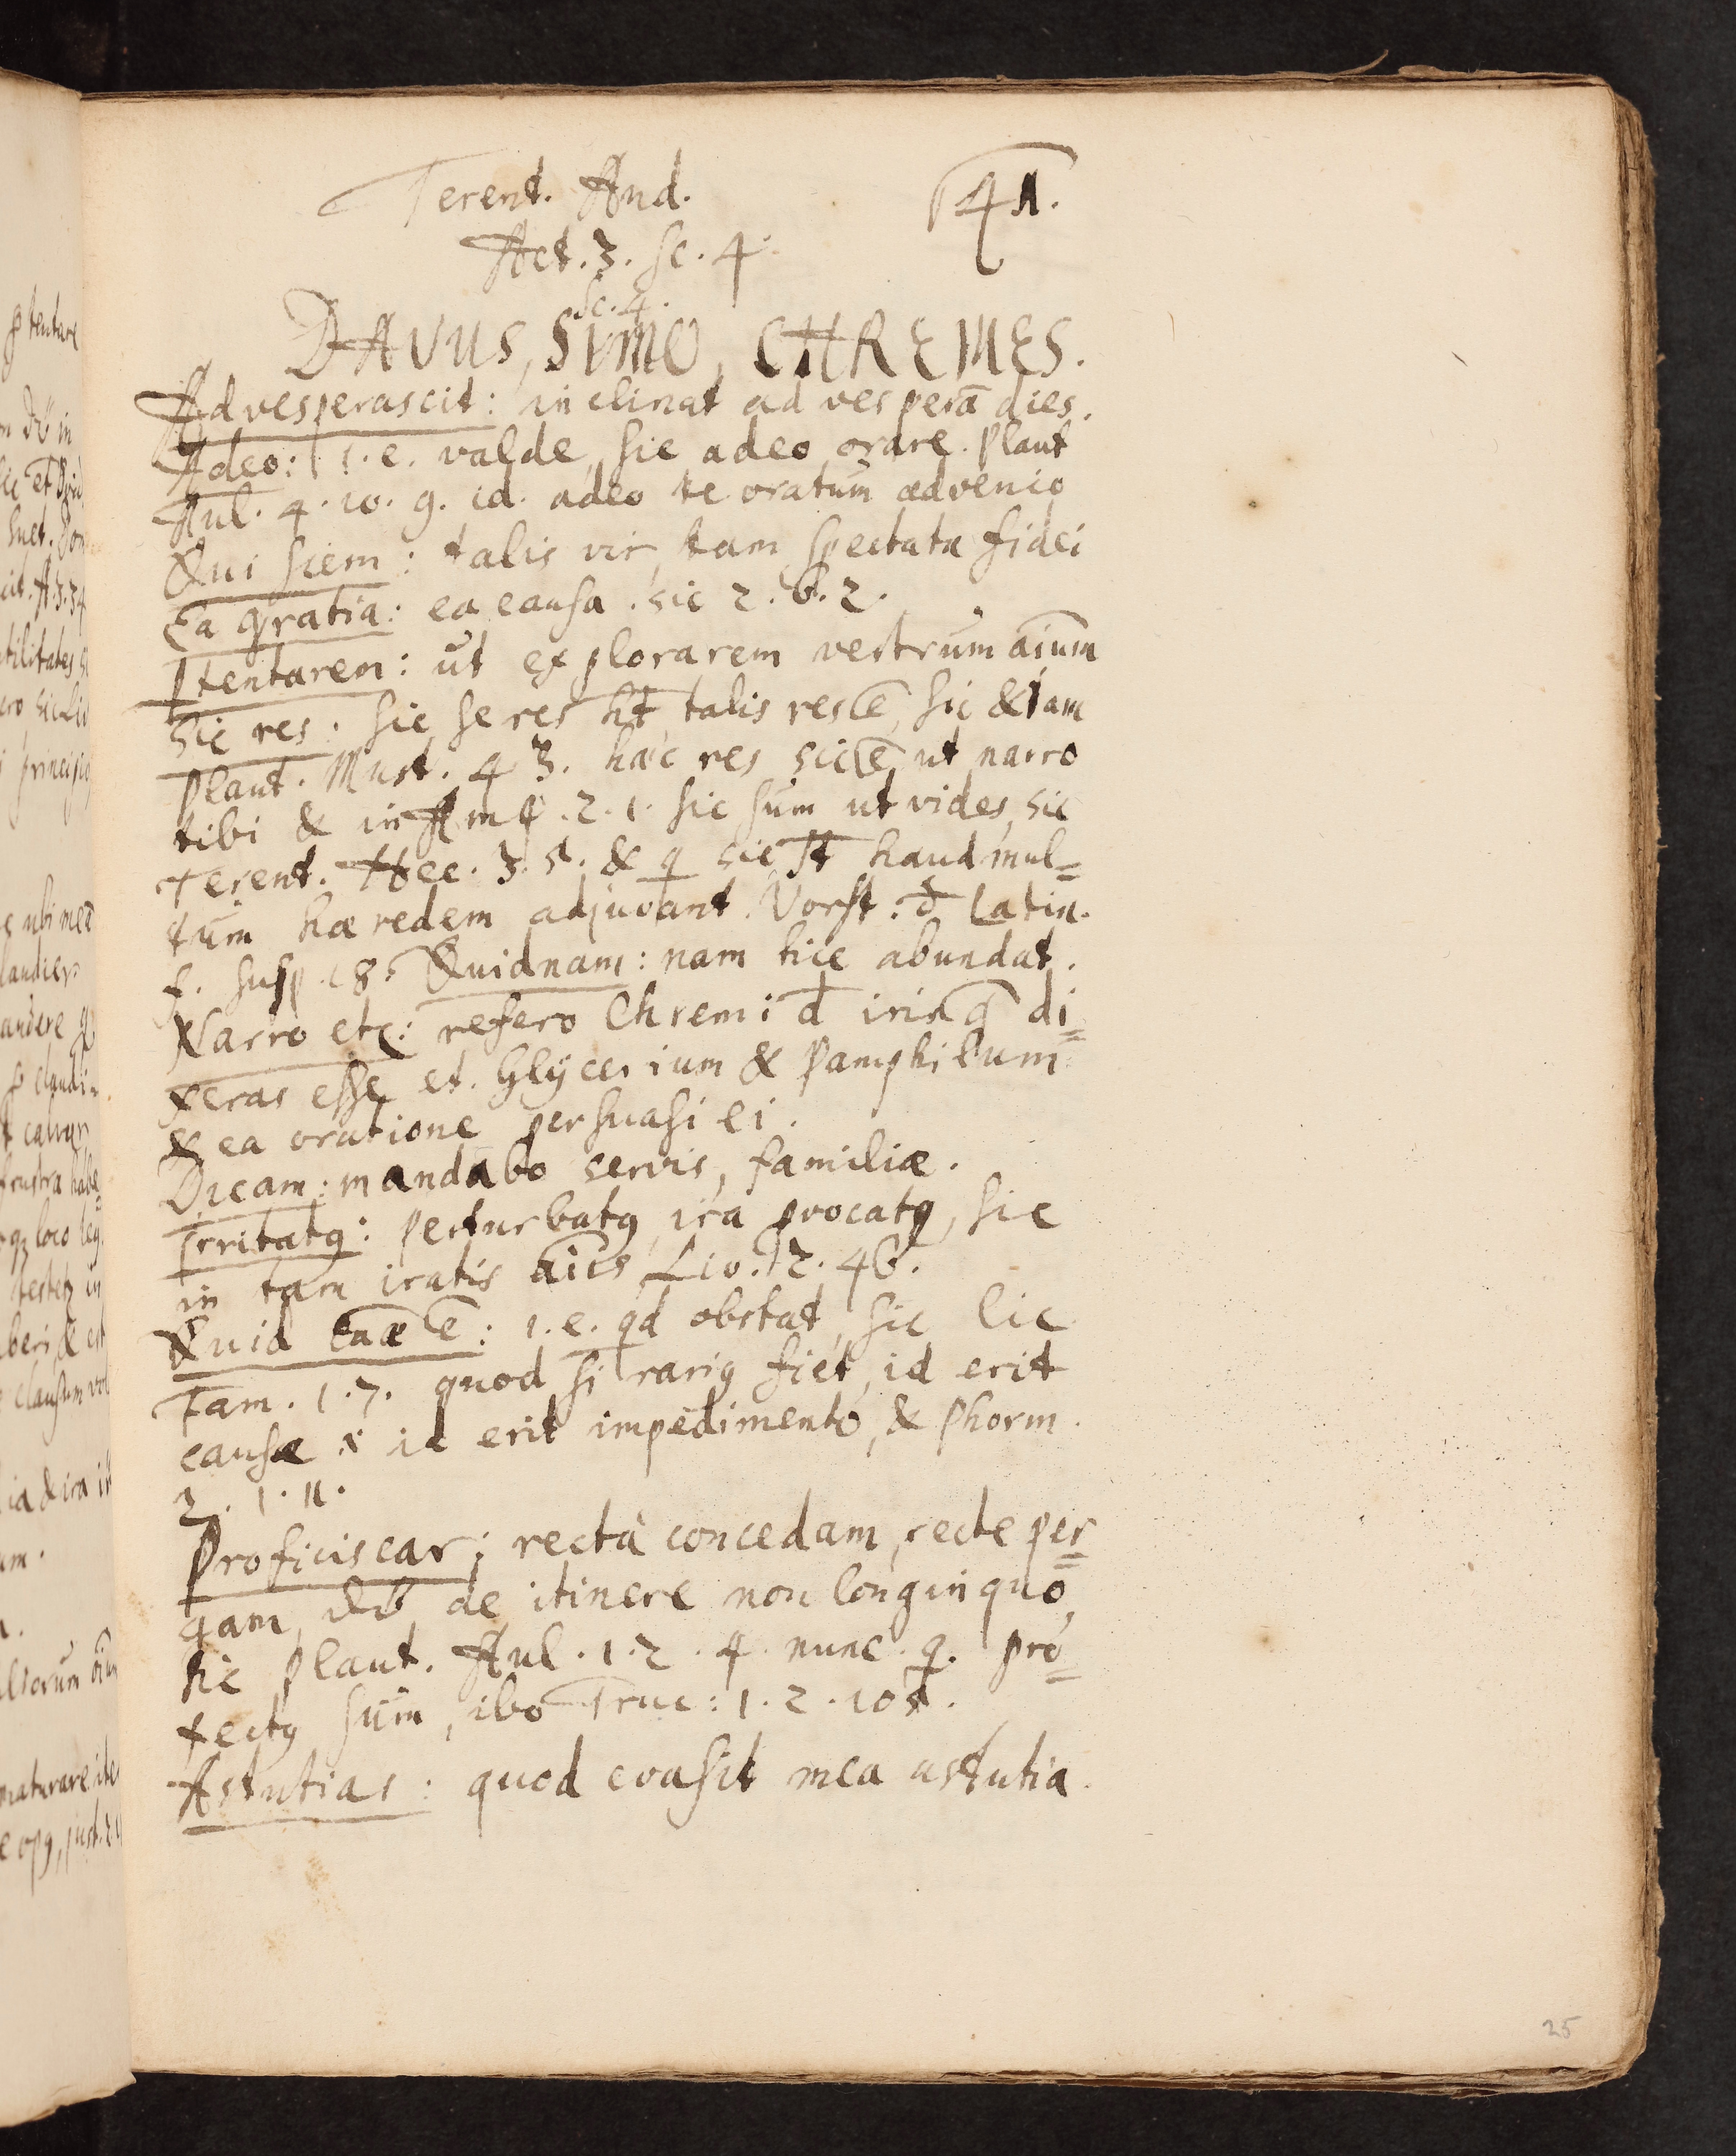 Terent. And. 41.
Act. 3. sc. 4.
Sc. 4.
DAVUS, SIMO, CHREMES.
Advesperascit: inclinat ad vesperā dies.
Adeo: i.e. valde, sic adeo orare. Plaut
Aul. 4. 10. 9. id. adeo te oratum advenio
Qui siem: talis vir, tam spectata fidei
Ea gratia: ea causa. sic 2. 6. 2.
Ptentarem: ut explorarem vestrum aīum
Sic res: sic se res ht talis res ē, sic & iam
Plaut. Must. 4 3. hæc res sic ē ut narro
tibi & in Amp. 2. 1. sic sum ut vides, sic
Terent. Hec. 3. 5. & q sic st haud mul=
tum hæredem adjuvant. Vorst: d Latin.
f. susp. 18. Quidnam: nam hic abundat.
Narro etc: refero Chremi d irin q di=
xeras esse et. Glycerium & Pamphilum
& ea oratione persuasi ei.
Dicam: mandabo servis, familiæ.
Irritatq: perturbatq, ira provocatq, sic
in tam iratis aīis Liv. 2. 46.
Quid cāæ ē: i.e. qd obstat, sic Cic
Fam. 1. 7. quod si rariq fiet, id erit
causæ id erit impedimento, & Phorm.
2. 1. 11.
Proficiscar: rectà concedam, recte per=
gam, de itinere non longinquo,
sic Plaut. Aul. 1. 2. 4. nunc q. pro=
fectq sum, ibo Truc: 1. 2. 105.
Astutias: quod evasit mea astutia.
25